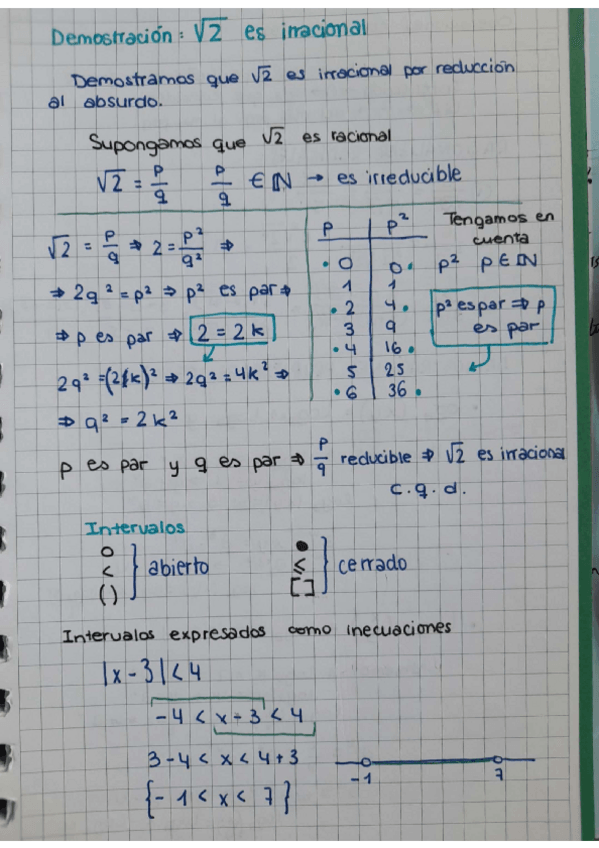 Demostración: √2 es irracional
Demostramos que √2 es irracional por reducción
al absurdo.
Supongamos que √2 es racional
√2 = p/q p/q ∈ ℕ → es irreducible
√2 = p/q ⇒ 2 = p²/q² ⇒
⇒ 2q² = p² ⇒ p² es par ⇒
⇒ p es par ⇒ 2 = 2k
2q² = (2k)² ⇒ 2q² = 4k² ⇒
⇒ q² = 2k²
p p²
· 0 0 ·
1 1
· 2 4 ·
3 9
· 4 16 ·
5 25
· 6 36 ·
Tengamos en
cuenta
p² p ∈ ℕ
p² es par ⇒ p
es par
p es par y q es par ⇒ p/q reducible ⇒ √2 es irracional
c.q.d.
Intervalos
○
<
()
} abierto
●
≤
[]
} cerrado
Intervalos expresados como inecuaciones
|x - 3| < 4
-4 < x - 3 < 4
3 - 4 < x < 4 + 3
{-1 < x < 7}
-1 7